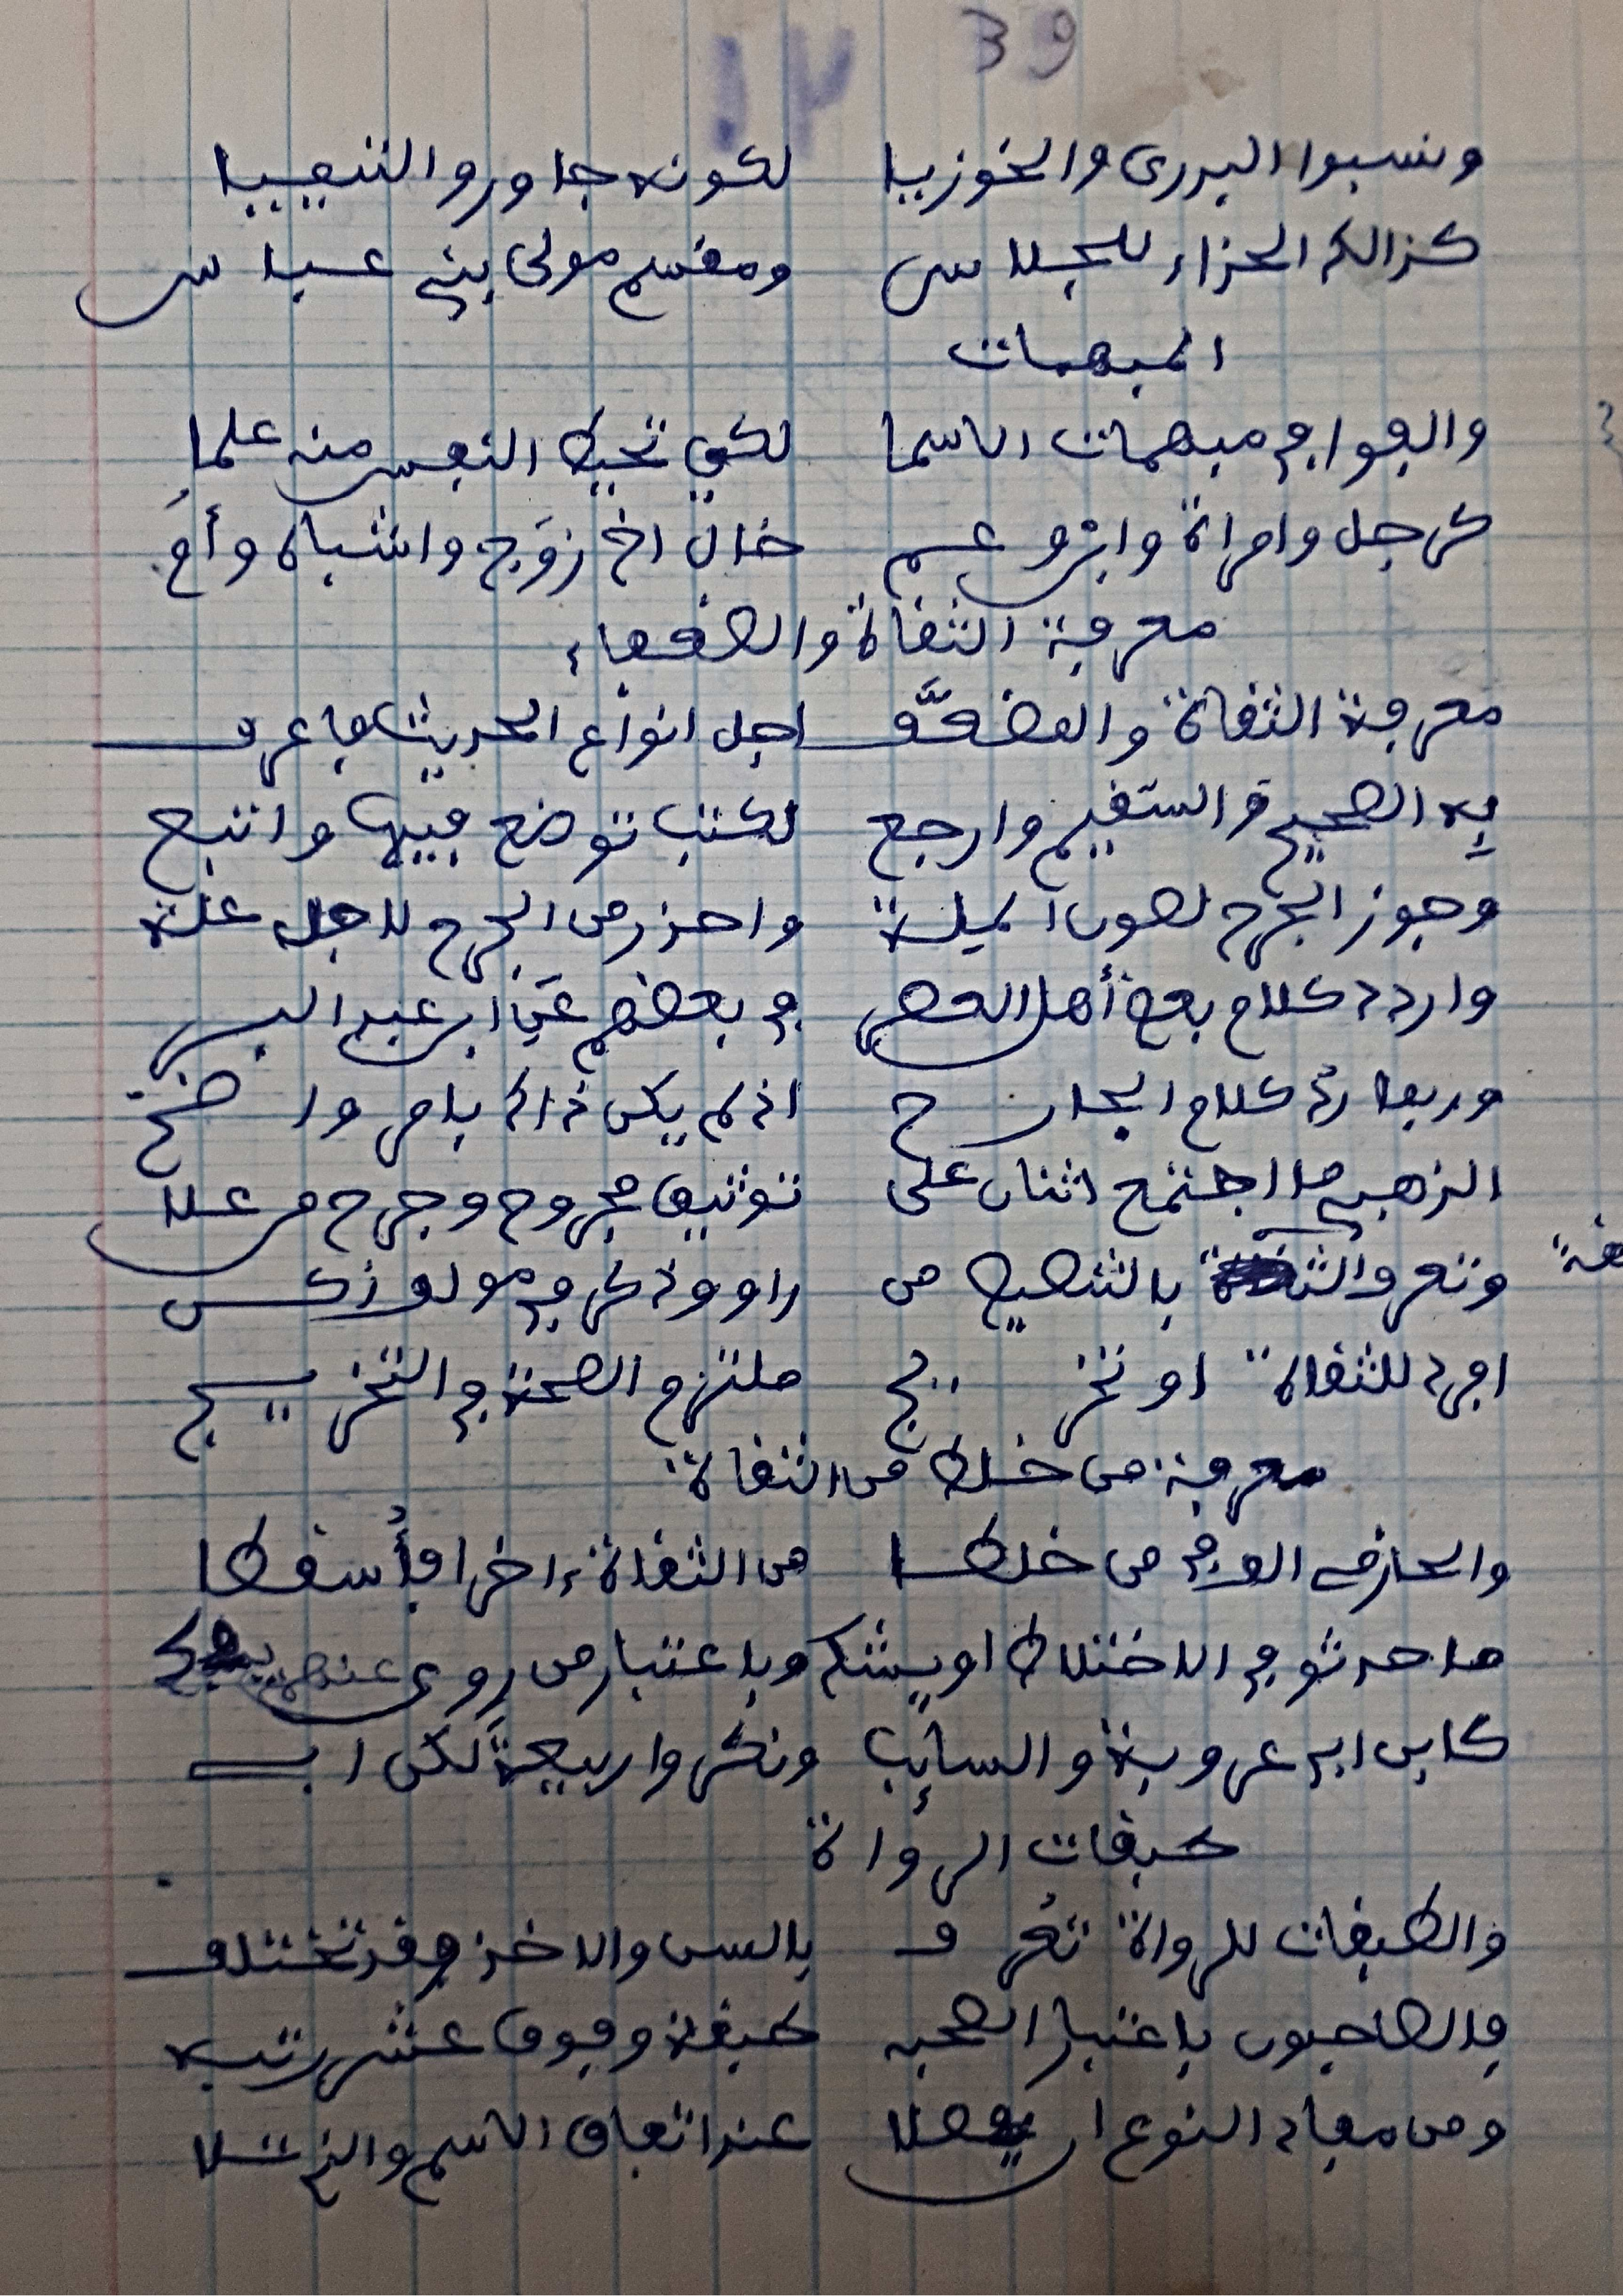 39
١٢
ونسبوا البدرى والخوزيا لكونه جاور والشعيبيا
كذالك الحذاء للجلاس ومقسم مولى بني عباس
المبهمات
والفوا في مبهمات الاسما لكي تحيط النفس منه علما
كرجل وامراة وابن وعم خال اخ زوج واشباه وأم
معرفة الثقاة والضعفاء
معرفة الثقاة والمضعَّف اجل انواع الحديث فاعرف
به الصحيح والسقيم وارجع لكتب توضع فيها واتبع
وجوز الجرح لصون الملة واحذر من الجرح لاجل علة
واردد كلام بعض أهل العصر في بعضهم عن ابن عبد البر
وربما رد كلام الجارح اذ لم يكن ذاك بامر واضح
الذهبي ما اجتمع اثنان على توثيق مجروح وجرح من علا
وتعرف الثقة بالتنصيص من راو وذكر في مولف زكن
افرد للثقاة او تخريج ملتزم الصحة في التخريج
معرفة من خلط من الثقاة
والحازمي الف في من خلطا من الثقاة ءاخرا فأُسقطا
ما حدثو في الاختلاط او يشك وباعتبار من روى عنهم يفك
كابن ابي عروبة والسائب ونكروا ربيعة لكن ابي
طبقات الرواة
والطبقات للرواة تعرف بالسن والاخذ وقد تختلف
فالصاحبون باعتبار الصحبه طبقة وفوق عشر رتبه
ومن مفاد النوع ان يفصلا عند اتفاق الاسم والذي تلا